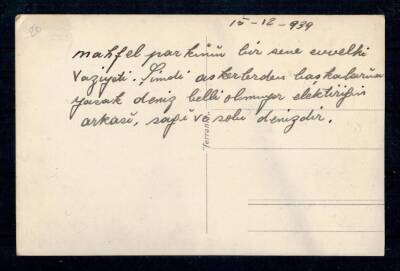 20
15-12-939
mahfel parkının bir sene evvelki
vaziyeti. Şimdi askerlerden başkalarına
yasak deniz belli olmuyor elektiriğin
arkası, sağı ve solu denizdir.
Ferrania